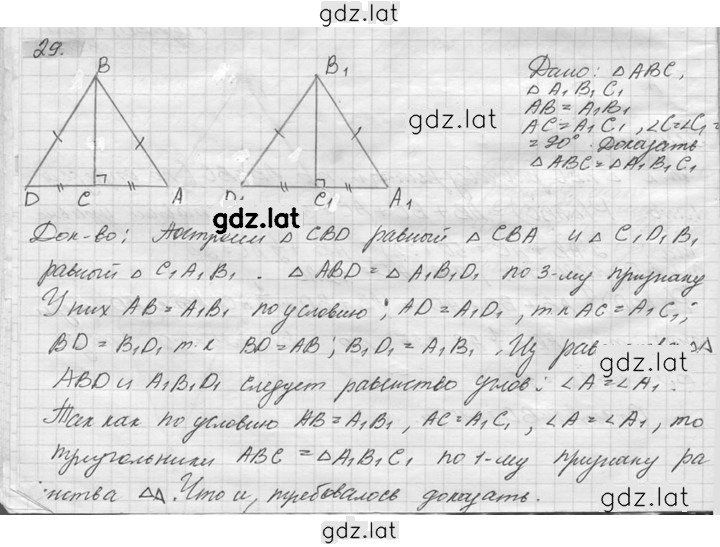 gdz.lat
29.
B
D C A
B₁
D₁ C₁ A₁
Дано: △ABC,
△A₁B₁C₁
AB = A₁B₁
AC = A₁C₁, ∠C=∠C₁=
= 90°. Доказать
△ABC = △A₁B₁C₁
gdz.lat
gdz.lat
Док-во: Построим △CBD равный △CBA и △C₁D₁B₁
равный △C₁A₁B₁. △ABD = △A₁B₁D₁ по 3-му признаку
У них AB = A₁B₁ по условию; AD = A₁D₁, т.к AC = A₁C₁;
BD = B₁D₁ т.к BD = AB; B₁D₁ = A₁B₁. Из
ABD и A₁B₁D₁ следует равенство углов: ∠A = ∠A₁.
Так как по условию AB = A₁B₁, AC = A₁C₁, ∠A = ∠A₁, то
треугольники ABC = △A₁B₁C₁ по 1-му признаку ра
нства △△. Что и, требовалось доказать.
gdz.lat
gdz.lat